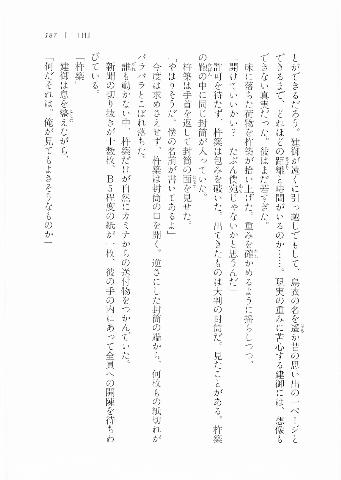 187 | III
とができるだろう。建御が遠くに引っ越してもして、鳥夜の名を遙か昔の思い出の一ページと
できるまで、どれほどの距離と時間がいるのか……。現実の重みに苦心する建御には、想像も
できない真実だった。彼はまだ若すぎた。
床に落ちた荷物を杵築が拾い上げた。重みを確かめるように揺らしつつ、
「開けていいかい？　たぶん僕宛じゃないかと思うんだ」
許可を待たず、杵築は包みを破いた。出てきたものは大判の封筒だ。見たことがある。杵築
の鞄の中に同じ封筒が入っていた。
杵築は手首を返して封筒の面を見せた。
「やはりそうだ。僕の名前が書いてあるよ」
今度は求めさえせず、杵築は封筒の口を開く。逆さにした封筒の端から、何枚もの紙切れが
バラバラとこぼれ落ちた。
誰も動かない中、杵築だけが自然にカミナからの送付物をつかんでいた。
新聞の切り抜きが十数枚、B5程度の紙が一枚、彼の手の内にあって全員への開陳を待ちわ
びている。
「杵築」
建御は息を整えながら、
「何だそれは。俺が見てもよさそうなものか」